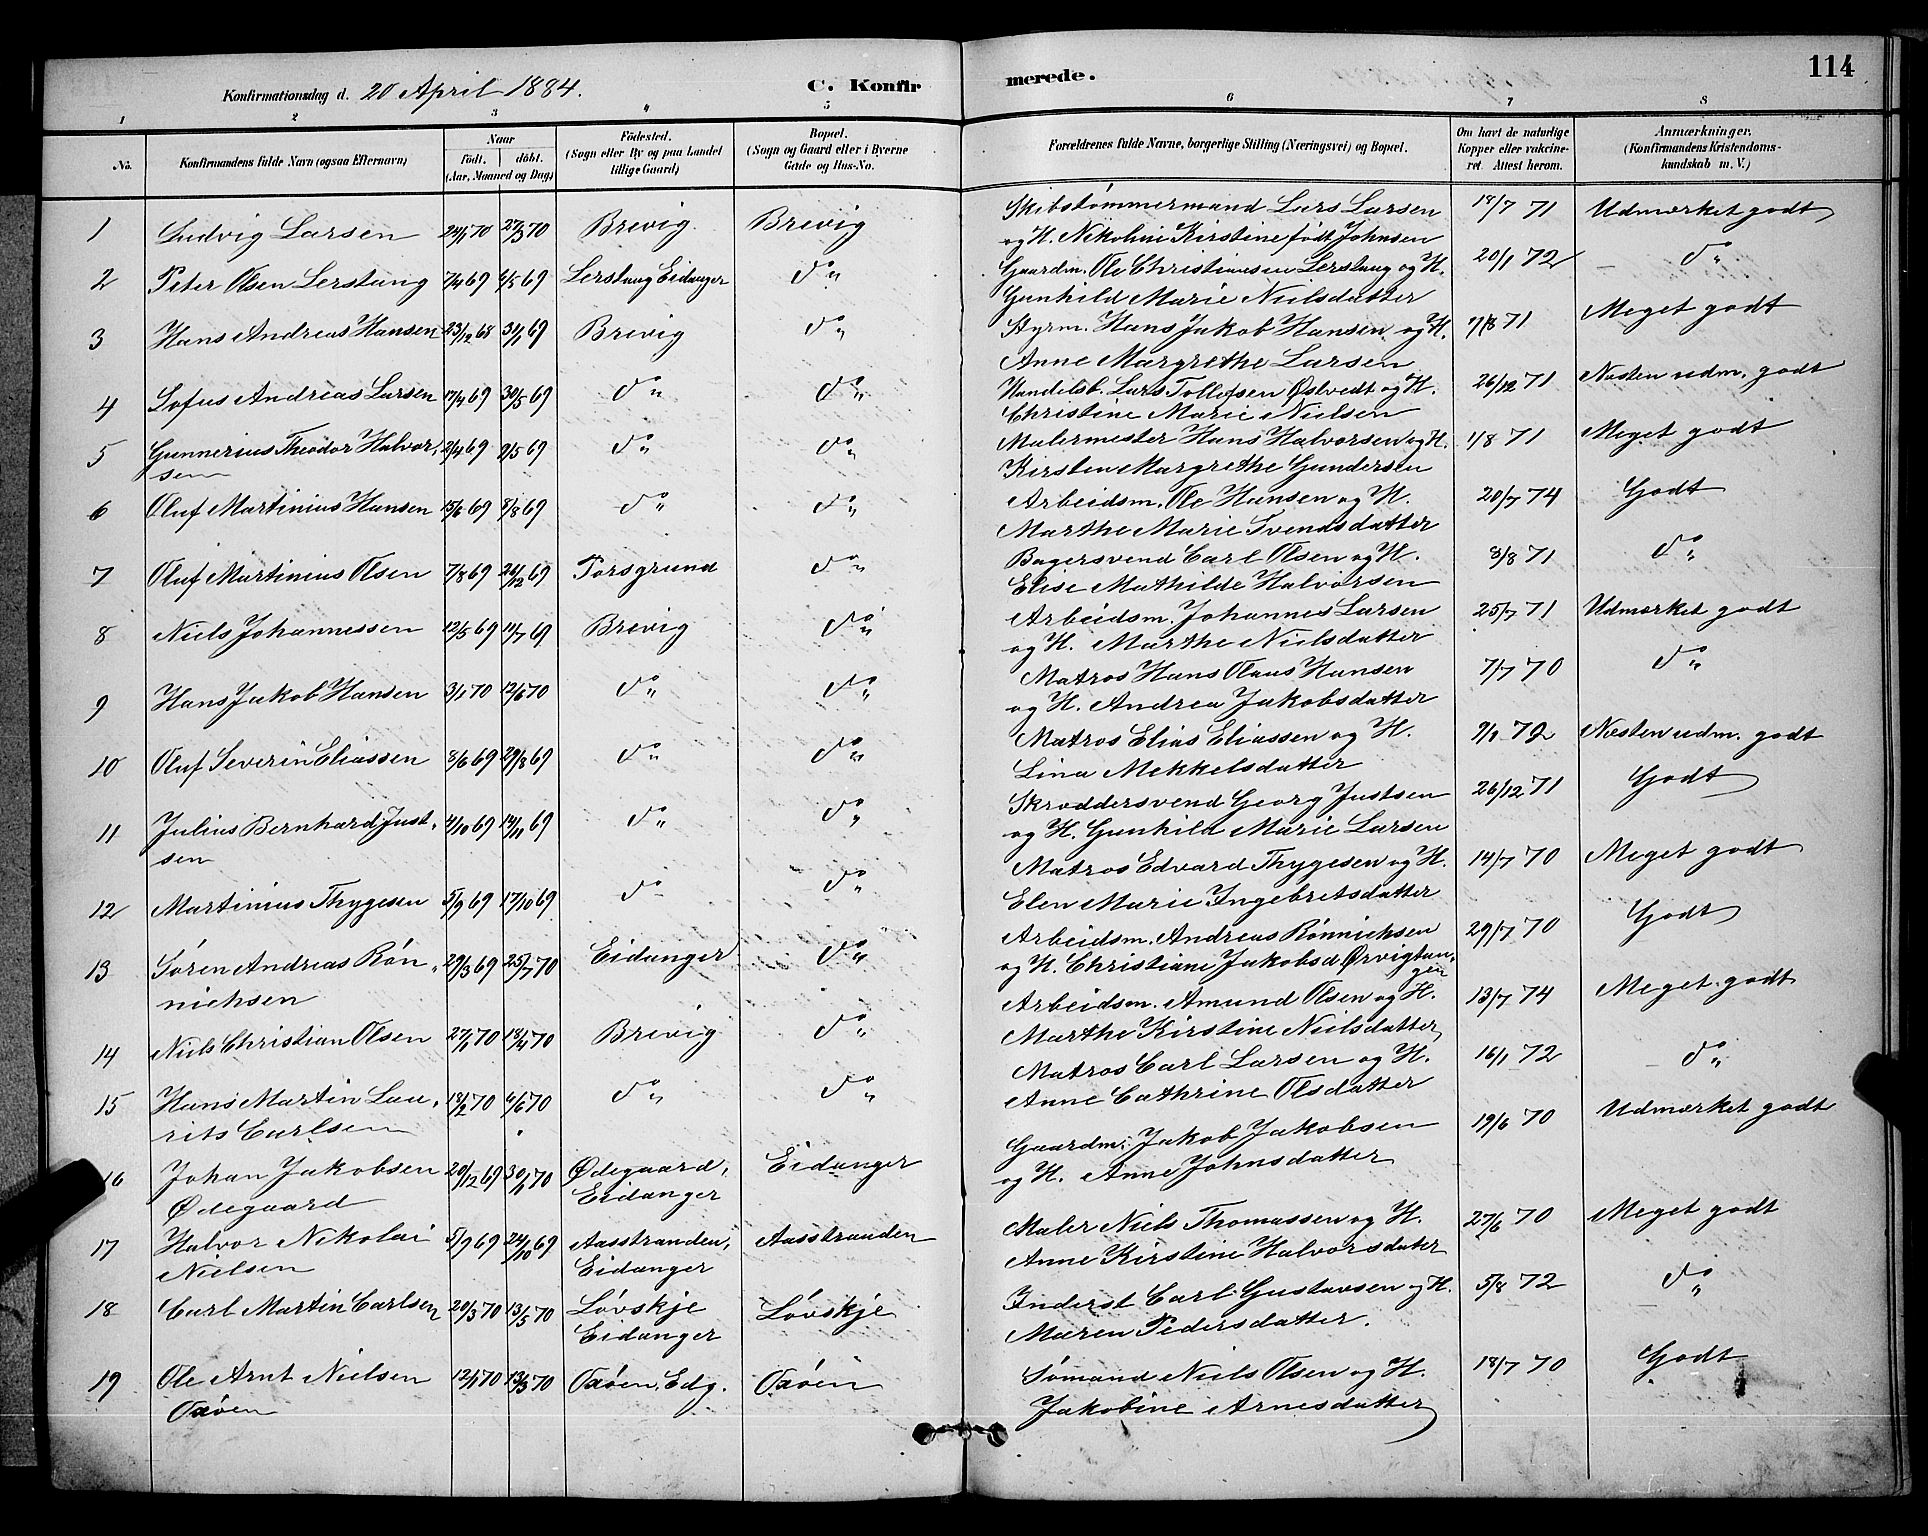 114
Konfirmationsdag d. 20 April 1884.
C. Konfirmerede.
1 2 3 4 5 6 7 8
No.
Konfirmandens fulde Navn (ogsaa Efternavn)
Naar
födt. döbt.
(Aar, Maaned og Dag)
Födested.
(Sogn eller By og paa Landet
tillige Gaard)
Bopæl.
(Sogn og Gaard eller i Byerne
Gade og Hus-No.
Forældrenes fulde Navne, borgerlige Stilling (Næringsvei) og Bopæl.
Om havt de naturlige
Kopper eller vakcine-
ret. Attest herom.
Anmærkninger.
(Konfirmandens Kristendoms-
kundskab m. V.)
1 Ludvig Larsen 24/1 70 27/3 70 Brevig Brevig Skibstømmermand Lars Larsen 18/7 71 Udmærket godt
og H. Nikoline Kirstine født Johnsen
2 Peter Olsen Lerstang 7/4 69 4/5 69 Lerstang Eidanger do Gaardm. Ole Christiansen Lerstang og H. 20/1 72 do
Gunhild Marie Nielsdatter
3 Hans Andreas Hansen 23/12 68 31/1 69 Brevig do Styrm. Hans Jakob Hansen og H. 7/8 71 Meget godt
Anne Margrethe Larsen
4 Sofus Andreas Larsen 17/4 69 30/5 69 do do Handelsb. Lars Tollefsen Østvedt og H. 26/12 71 Næsten udm. godt
Christine Marie Nielsen
5 Gunnerius Theodor Halvor- 2/4 69 9/5 69 do do Malermester Hans Halvorsen og H. 1/8 71 Meget godt
sen Kirsten Margrethe Gundersen
6 Oluf Martinius Hansen 15/6 69 8/8 69 do do Arbeidsm. Ole Hansen og H. 20/7 74 Godt
Marthe Marie Svendsdatter
7 Oluf Martinius Olsen 7/8 69 26/12 69 Porsgrund do Bagersvend Carl Olsen og H. 8/8 71 do
Elise Mathilde Halvorsen
8 Niels Johannessen 12/5 69 11/7 69 Brevig do Arbeidsm. Johannes Larsen 25/7 71 Udmærket godt
og H. Marthe Nielsdatter
9 Hans Jakob Hansen 3/1 70 12/6 70 do do Matros Hans Olaus Hansen 7/7 70 do
og H. Andrea Jakobsdatter
10 Oluf Severin Eliassen 8/6 69 29/8 69 do do Matros Elias Eliassen og H. 9/1 72 Næsten udm. godt
Lina Mekkelsdatter
11 Julius Bernhard Just- 4/10 69 14/11 69 do do Skræddersvend Georg Justsen 26/12 71 Godt
sen og H. Gunhild Marie Larsen
12 Martinius Thygesen 5/9 69 17/10 69 do do Matros Edvard Thygesen og H. 14/7 70 Meget godt
Elen Marie Ingebretsdatter
13 Søren Andreas Røn- 29/3 69 25/7 70 Eidanger do Arbeidsm. Andreas Rønnichsen 29/7 70 Godt
nichsen og H. Christiane Jakobsd Ørvigtan-
gen
14 Niels Christian Olsen 27/1 70 18/4 70 Brevig do Arbeidsm. Amund Olsen og H. 13/7 74 Meget godt
Marthe Kirstine Nielsdatter
15 Hans Martin Lau- 18/2 70 6/6 70 do do Matros Carl Larsen og H. 16/1 72 do
rits Carlsen Anne Cathrine Olsdatter
16 Johan Jakobsen 20/12 69 30/1 70 Ødegaard, Eidanger Gaardm. Jakob Jakobsen 19/6 70 Udmærket godt
Ødegaard Eidanger og H. Anne Johnsdatter
17 Halvor Nikolai 5/9 69 24/10 69 Aasstranden, Aasstranden Maler Niels Thomassen og H. 27/6 70 Meget godt
Nielsen Eidanger Anne Kirstine Halvorsdater
18 Carl Martin Carlsen 20/3 70 13/5 70 Løvskje Løvskje Inderst Carl Gustavsen og H. 5/8 72 do
Eidanger Maren Pedersdatter.
19 Ole Arnt Nielsen 12/1 70 13/3 70 Oxøen, Edg. Oxøen Sømand Niels Olsen og H. 18/7 70 Godt
Oxøen Jakobine Arnesdatter